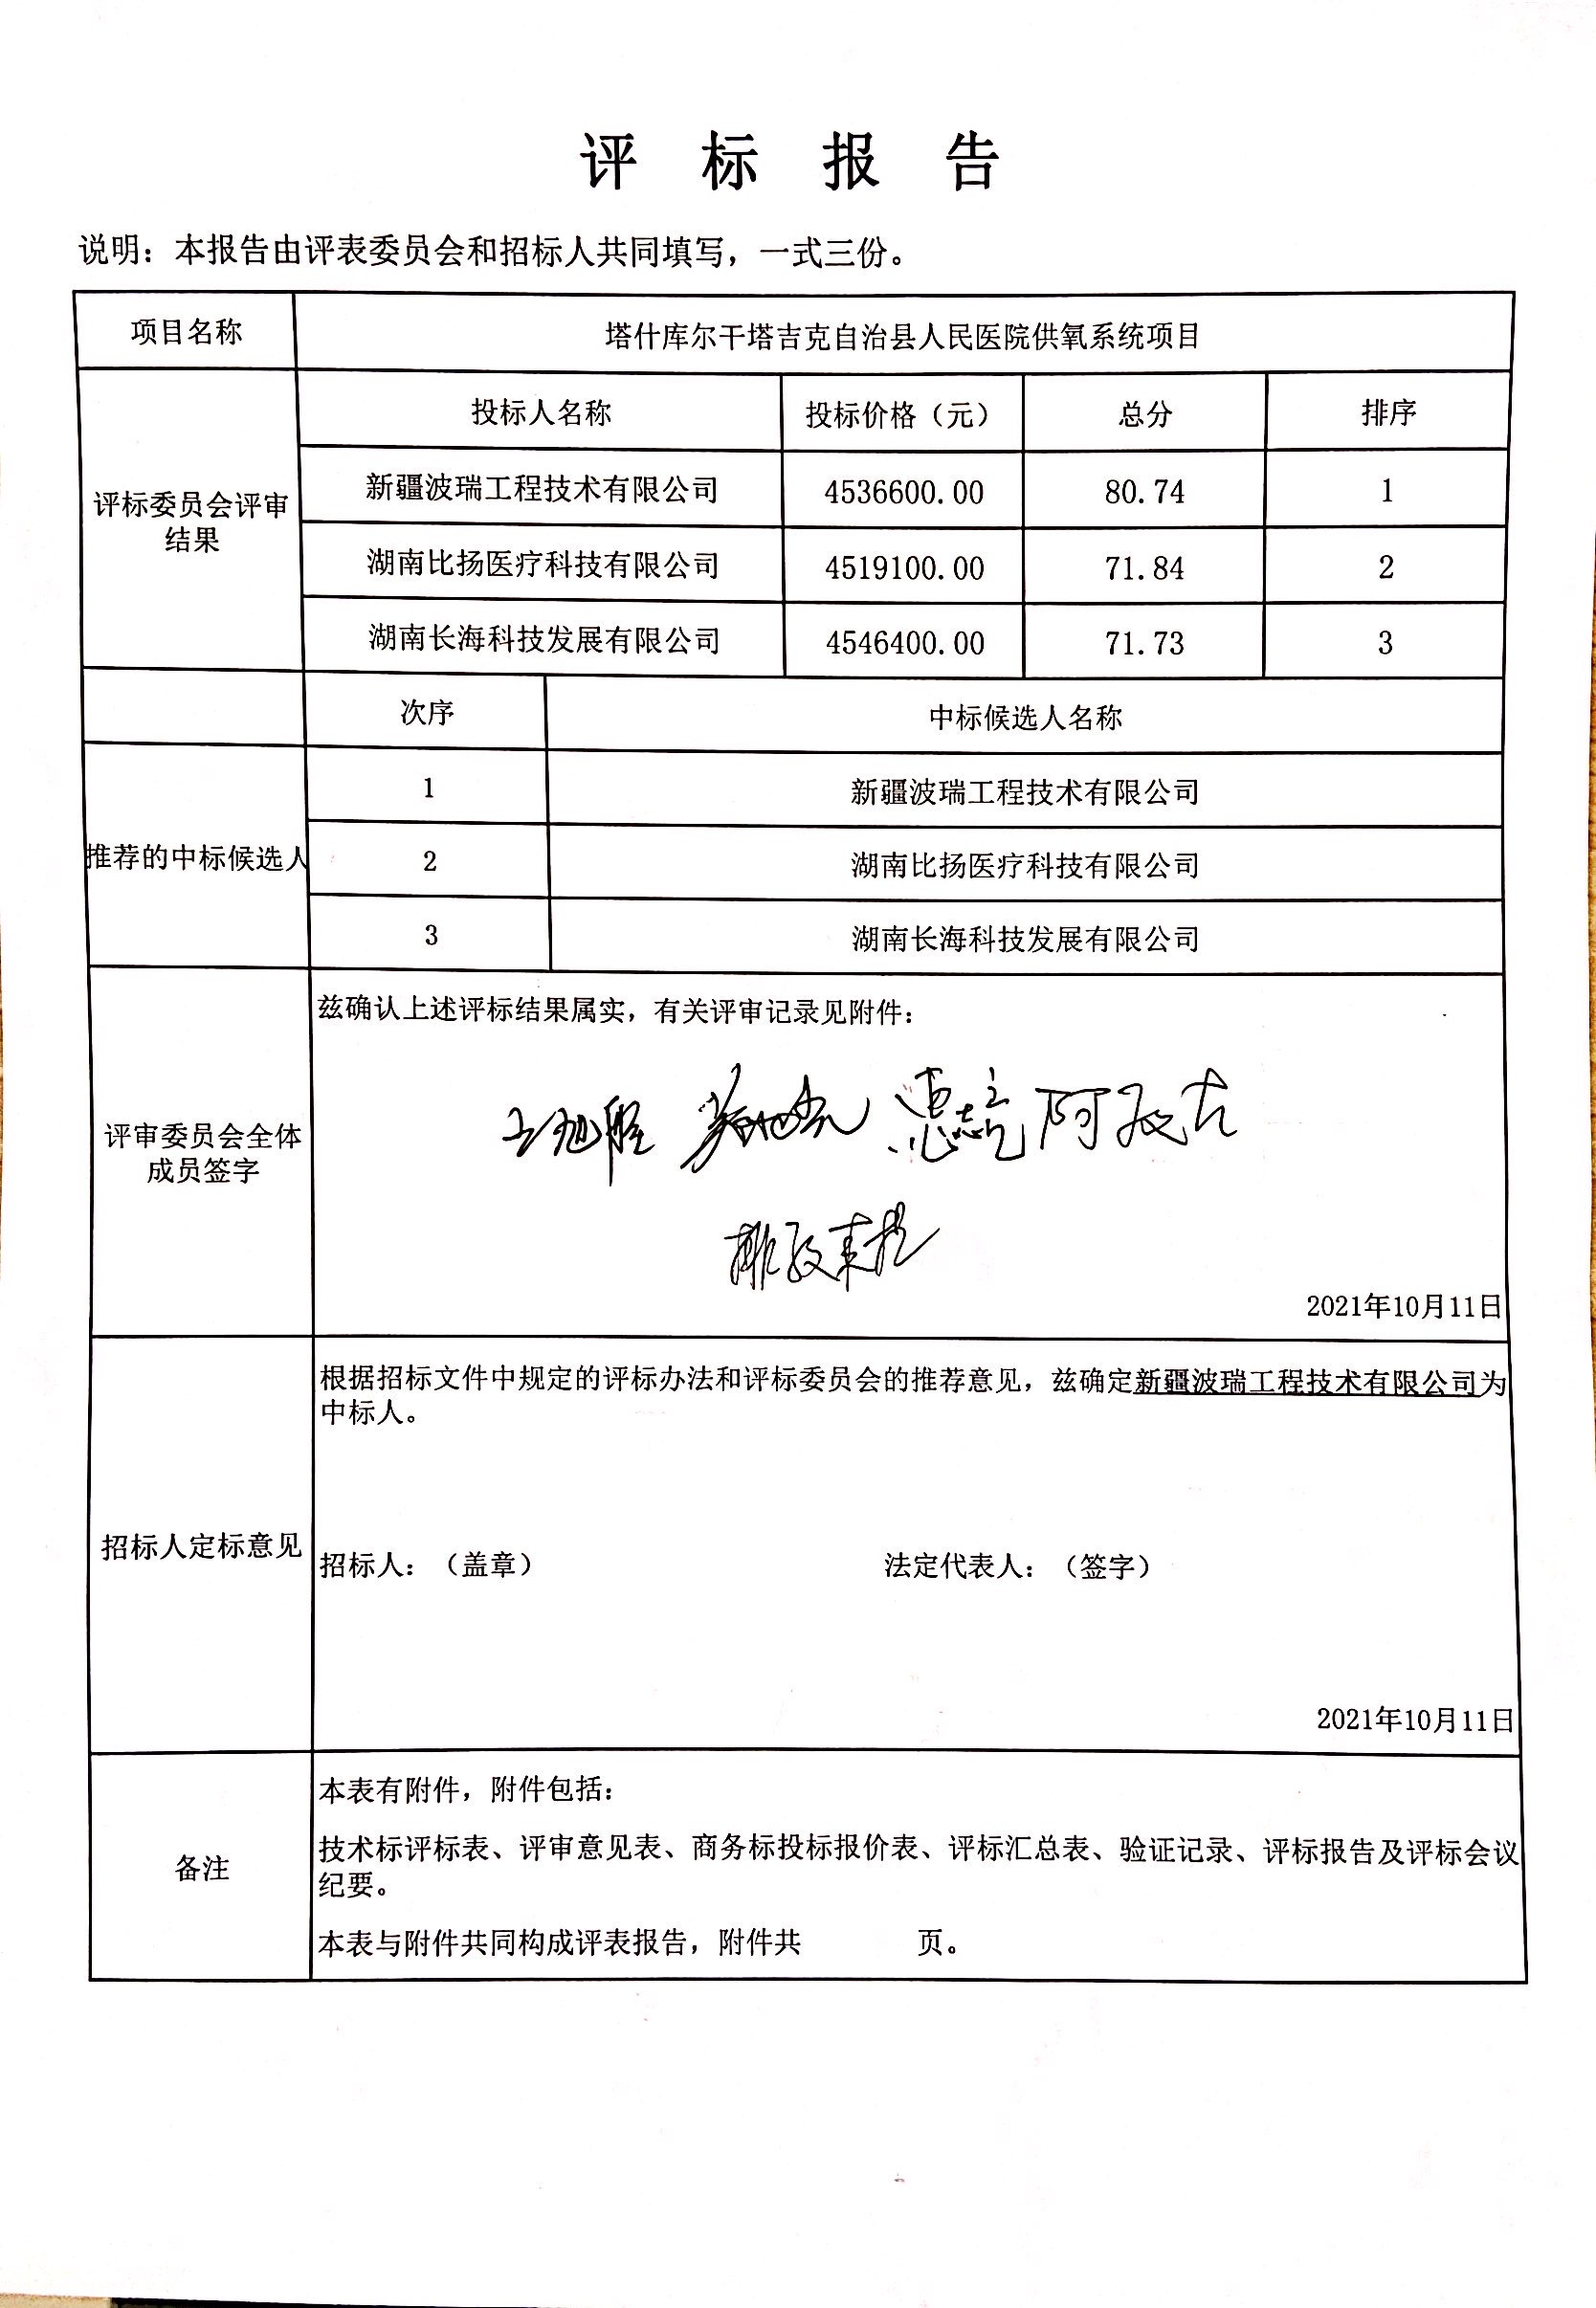 评标报告
说明：本报告由评表委员会和招标人共同填写，一式三份。
项目名称 塔什库尔干塔吉克自治县人民医院供氧系统项目
评标委员会评审结果
投标人名称 投标价格（元） 总分 排序
新疆波瑞工程技术有限公司 4536600.00 80.74 1
湖南比扬医疗科技有限公司 4519100.00 71.84 2
湖南长海科技发展有限公司 4546400.00 71.73 3
次序 中标候选人名称
推荐的中标候选人
1 新疆波瑞工程技术有限公司
2 湖南比扬医疗科技有限公司
3 湖南长海科技发展有限公司
评审委员会全体
成员签字
兹确认上述评标结果属实，有关评审记录见附件：
2021年10月11日
招标人定标意见
根据招标文件中规定的评标办法和评标委员会的推荐意见，兹确定新疆波瑞工程技术有限公司为
中标人。
招标人：（盖章） 法定代表人：（签字）
2021年10月11日
备注
本表有附件，附件包括：
技术标评标表、评审意见表、商务标投标报价表、评标汇总表、验证记录、评标报告及评标会议
纪要。
本表与附件共同构成评表报告，附件共 页。